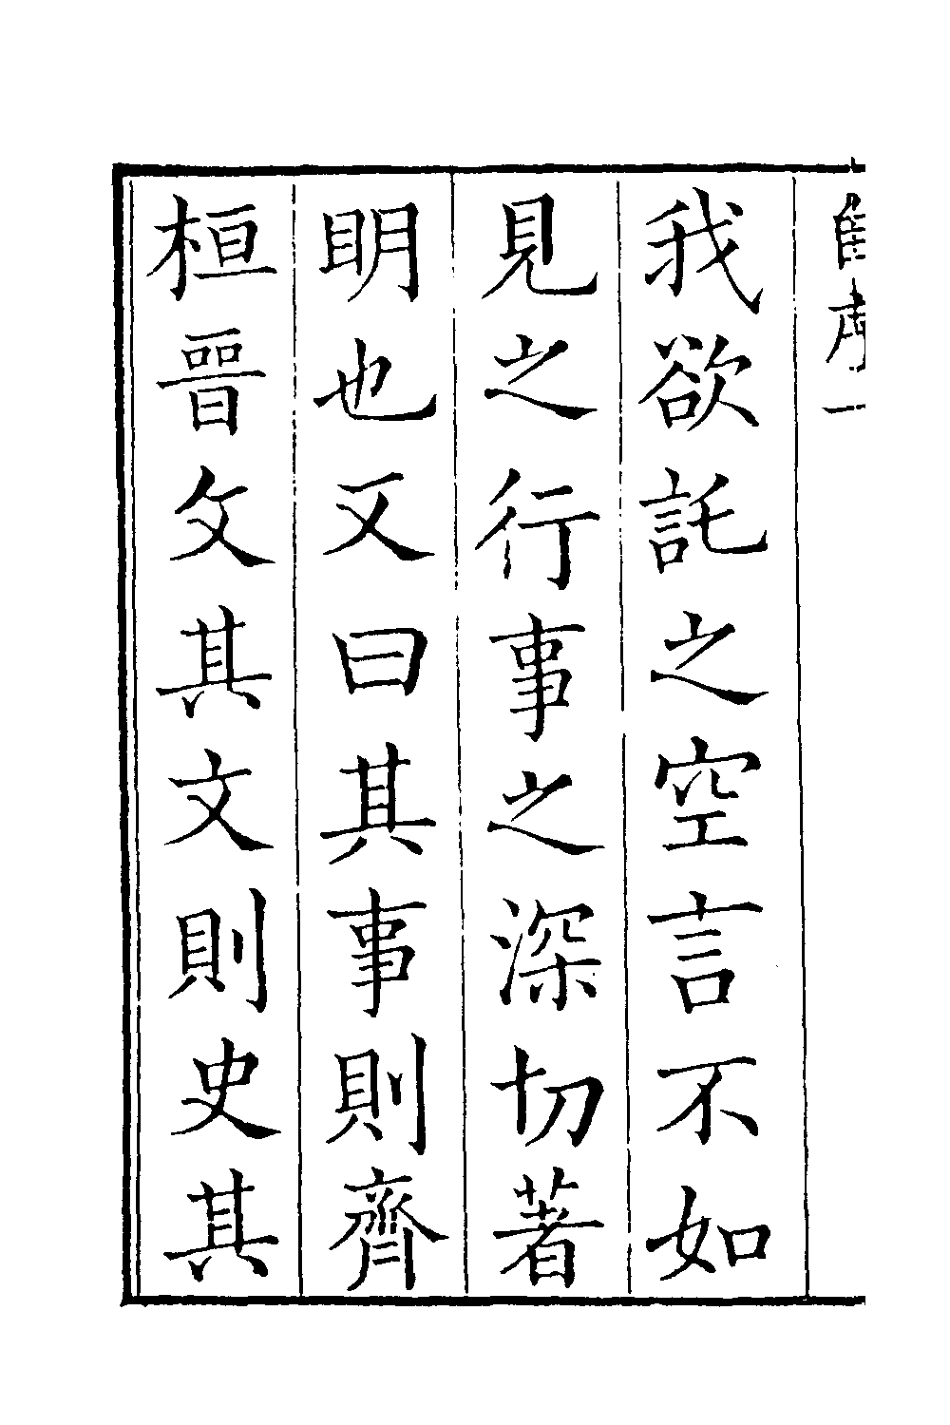 我欲託之空言不如
見之行事之深切著
明也又曰其事則齊
桓晉文其文則史其